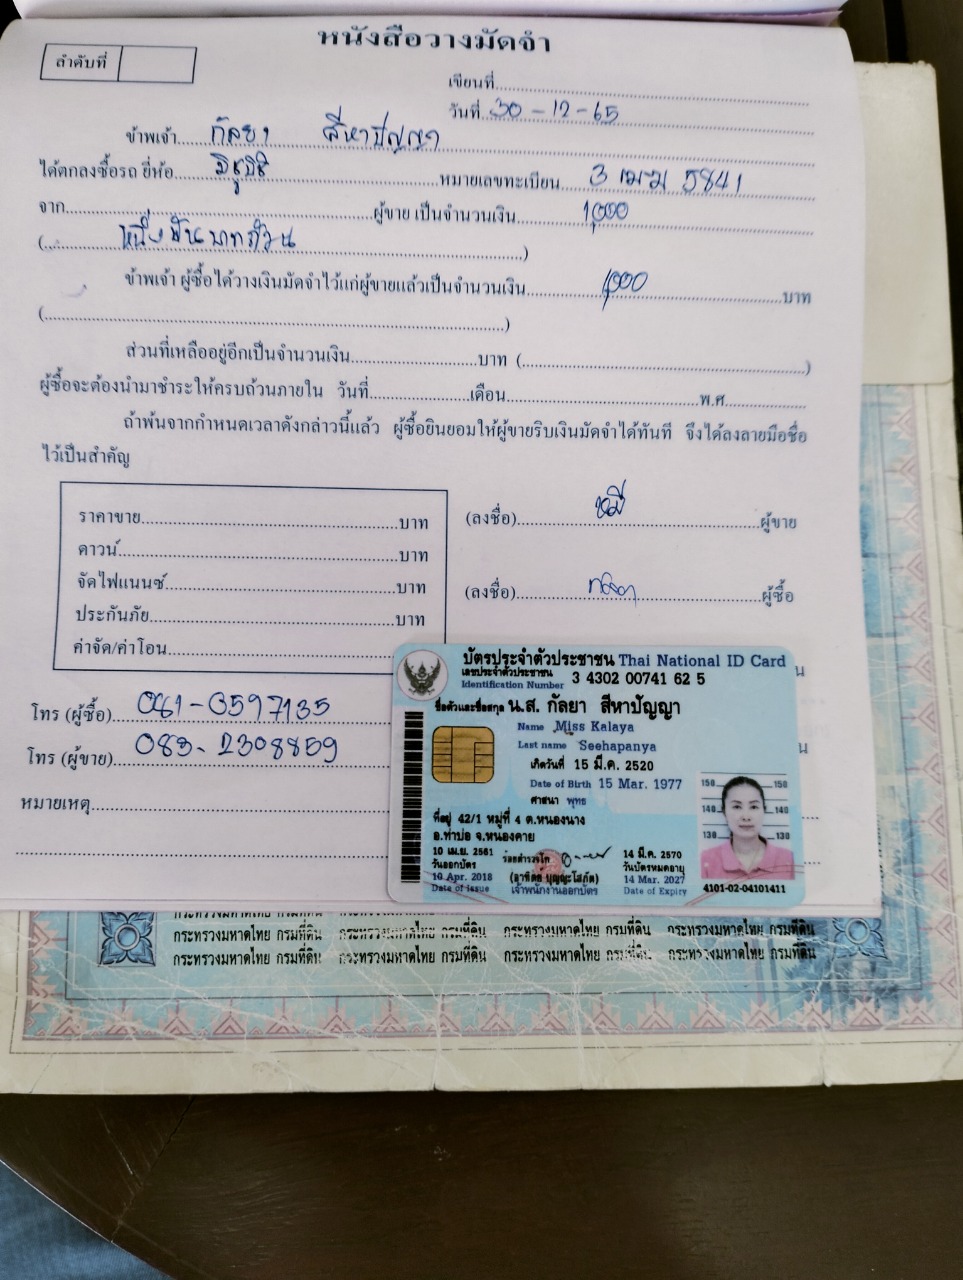 หนังสือวางมัดจำ
ลำดับที่
เขียนที่
วันที่ 30-12-65
ข้าพเจ้า กัลยา สีหาปัญญา
ได้ตกลงซื้อรถ ยี่ห้อ มิตซูบิชิ หมายเลขทะเบียน 3 เมษ 5841
จาก ผู้ขาย เป็นจำนวนเงิน 1,000
( หนึ่งพันบาทถ้วน )
ข้าพเจ้า ผู้ซื้อได้วางเงินมัดจำไว้แก่ผู้ขายแล้วเป็นจำนวนเงิน 1,000 บาท
( )
ส่วนที่เหลืออยู่อีกเป็นจำนวนเงิน บาท ( )
ผู้ซื้อจะต้องนำมาชำระให้ครบถ้วนภายใน วันที่ เดือน พ.ศ.
ถ้าพ้นจากกำหนดเวลาดังกล่าวนี้แล้ว ผู้ซื้อยินยอมให้ผู้ขายริบเงินมัดจำได้ทันที จึงได้ลงลายมือชื่อ
ไว้เป็นสำคัญ
ราคาขาย บาท
ดาวน์ บาท
จัดไฟแนนซ์ บาท
ประกันภัย บาท
ค่าจัด/ค่าโอน
(ลงชื่อ) ผู้ขาย
(ลงชื่อ) ผู้ซื้อ
โทร (ผู้ซื้อ) 081-0597135
โทร (ผู้ขาย) 083-2308859
หมายเหตุ
บัตรประจำตัวประชาชน Thai National ID Card
เลขประจำตัวประชาชน 3 4302 00741 62 5
Identification Number
ชื่อตัวและชื่อสกุล น.ส. กัลยา สีหาปัญญา
Name Miss Kalaya
Last name Seehapanya
เกิดวันที่ 15 มี.ค. 2520
Date of Birth 15 Mar. 1977
ศาสนา พุทธ
ที่อยู่ 42/1 หมู่ที่ 4 ต.หนองนาง
อ.ท่าบ่อ จ.หนองคาย
10 เม.ย. 2561
วันออกบัตร
10 Apr. 2018
Date of Issue
ร้อยตำรวจโท
(อาทิตย์ บุญญะโสภัต)
เจ้าพนักงานออกบัตร
14 มี.ค. 2570
วันบัตรหมดอายุ
14 Mar. 2027
Date of Expiry
150 150
140 140
130 130
4101-02-04101411
กระทรวงมหาดไทย กรมที่ดิน กระทรวงมหาดไทย กรมที่ดิน กระทรวงมหาดไทย กรมที่ดิน กระทรวงมหาดไทย กรมที่ดิน
กระทรวงมหาดไทย กรมที่ดิน กระทรวงมหาดไทย กรมที่ดิน กระทรวงมหาดไทย กรมที่ดิน กระทรวงมหาดไทย กรมที่ดิน